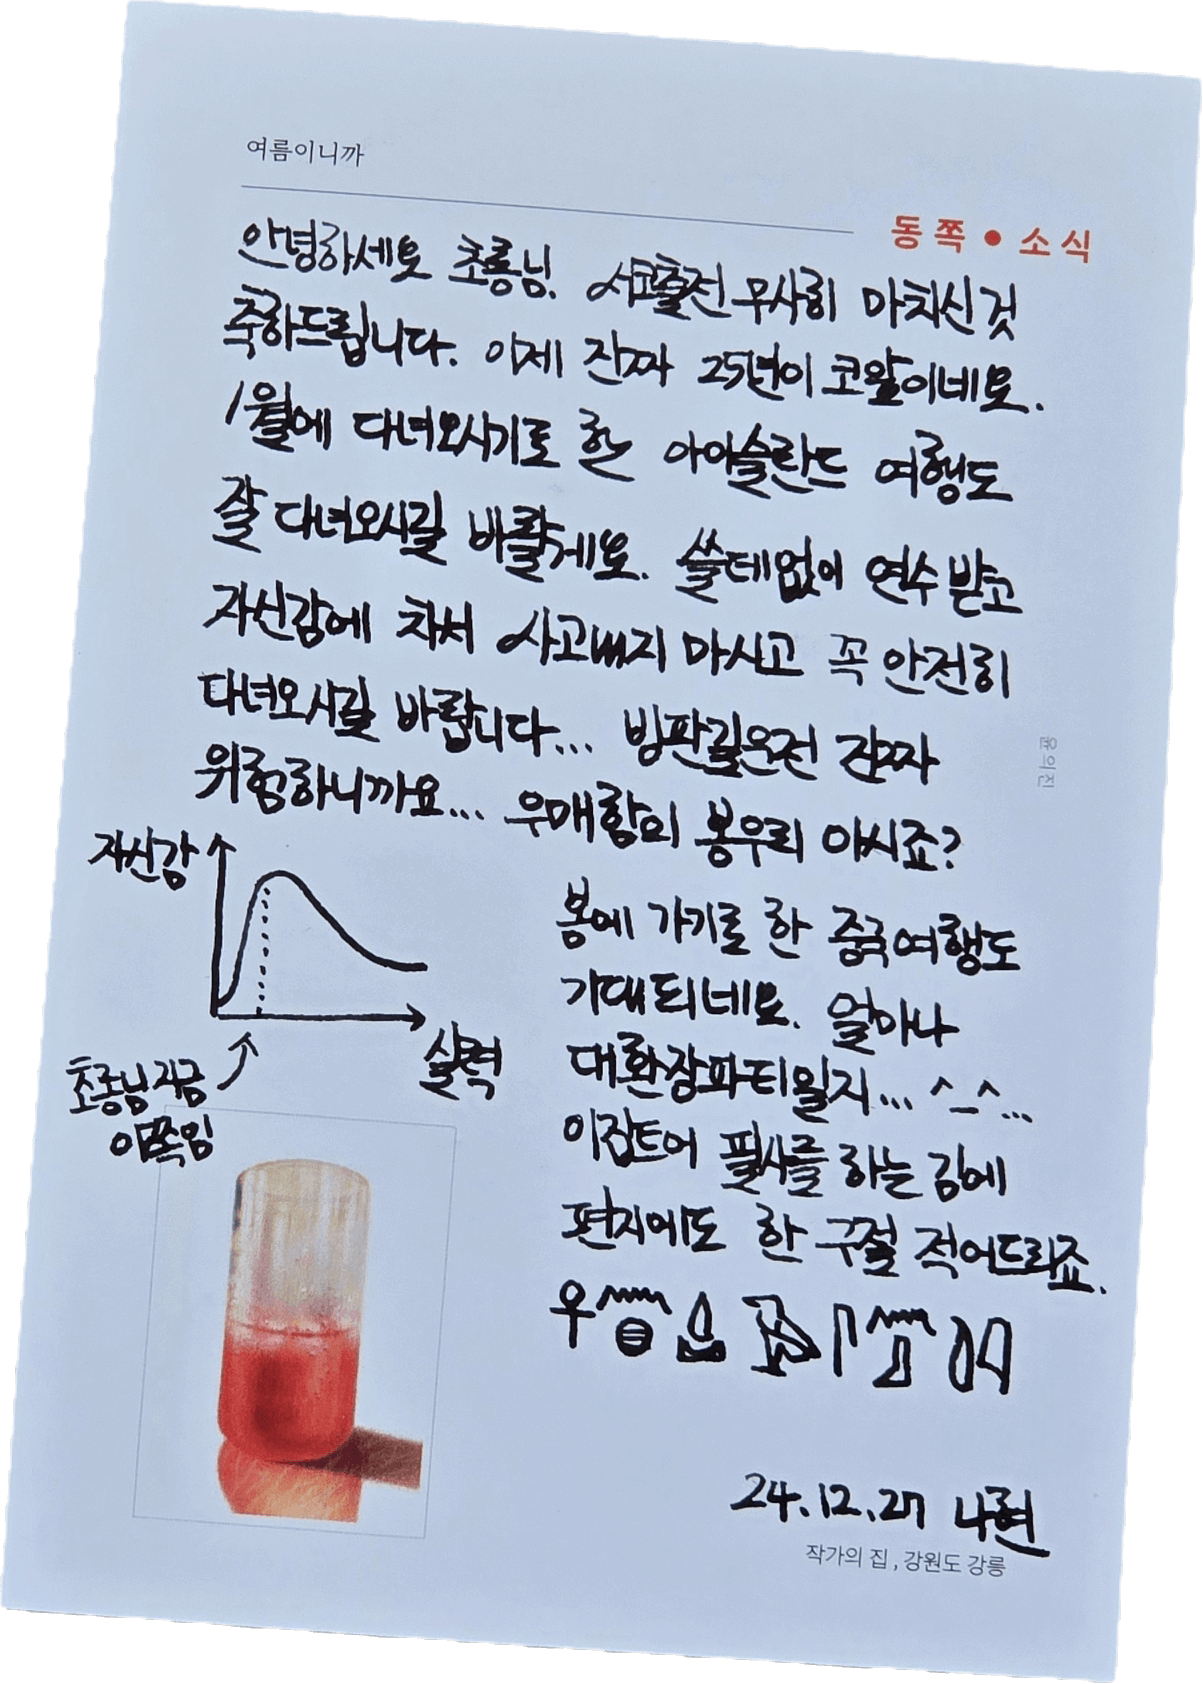 여름이니까
동쪽 • 소식
안녕하세요 초롱님. 서코출전 무사히 마치신 것
축하드립니다. 이제 진짜 25년이 코앞이네요.
1월에 다녀오시기로 한 아이슬란드 여행도
잘 다녀오시길 바랄게요. 쓸데없이 연수 받고
자신감에 차서 사고내지 마시고 꼭 안전히
다녀오시길 바랍니다... 빙판길운전 진짜
위험하니까요... 우매함의 봉우리 아시죠?
윤의진
자신감
실력
초롱님 지금
이쪽임
봄에 가기로 한 중국여행도
기대되네요. 얼마나
대환장파티일지... ^_^...
이집트어 필사를 하는 김에
편지에도 한 구절 적어드리죠.
24.12.27 나현
작가의 집, 강원도 강릉